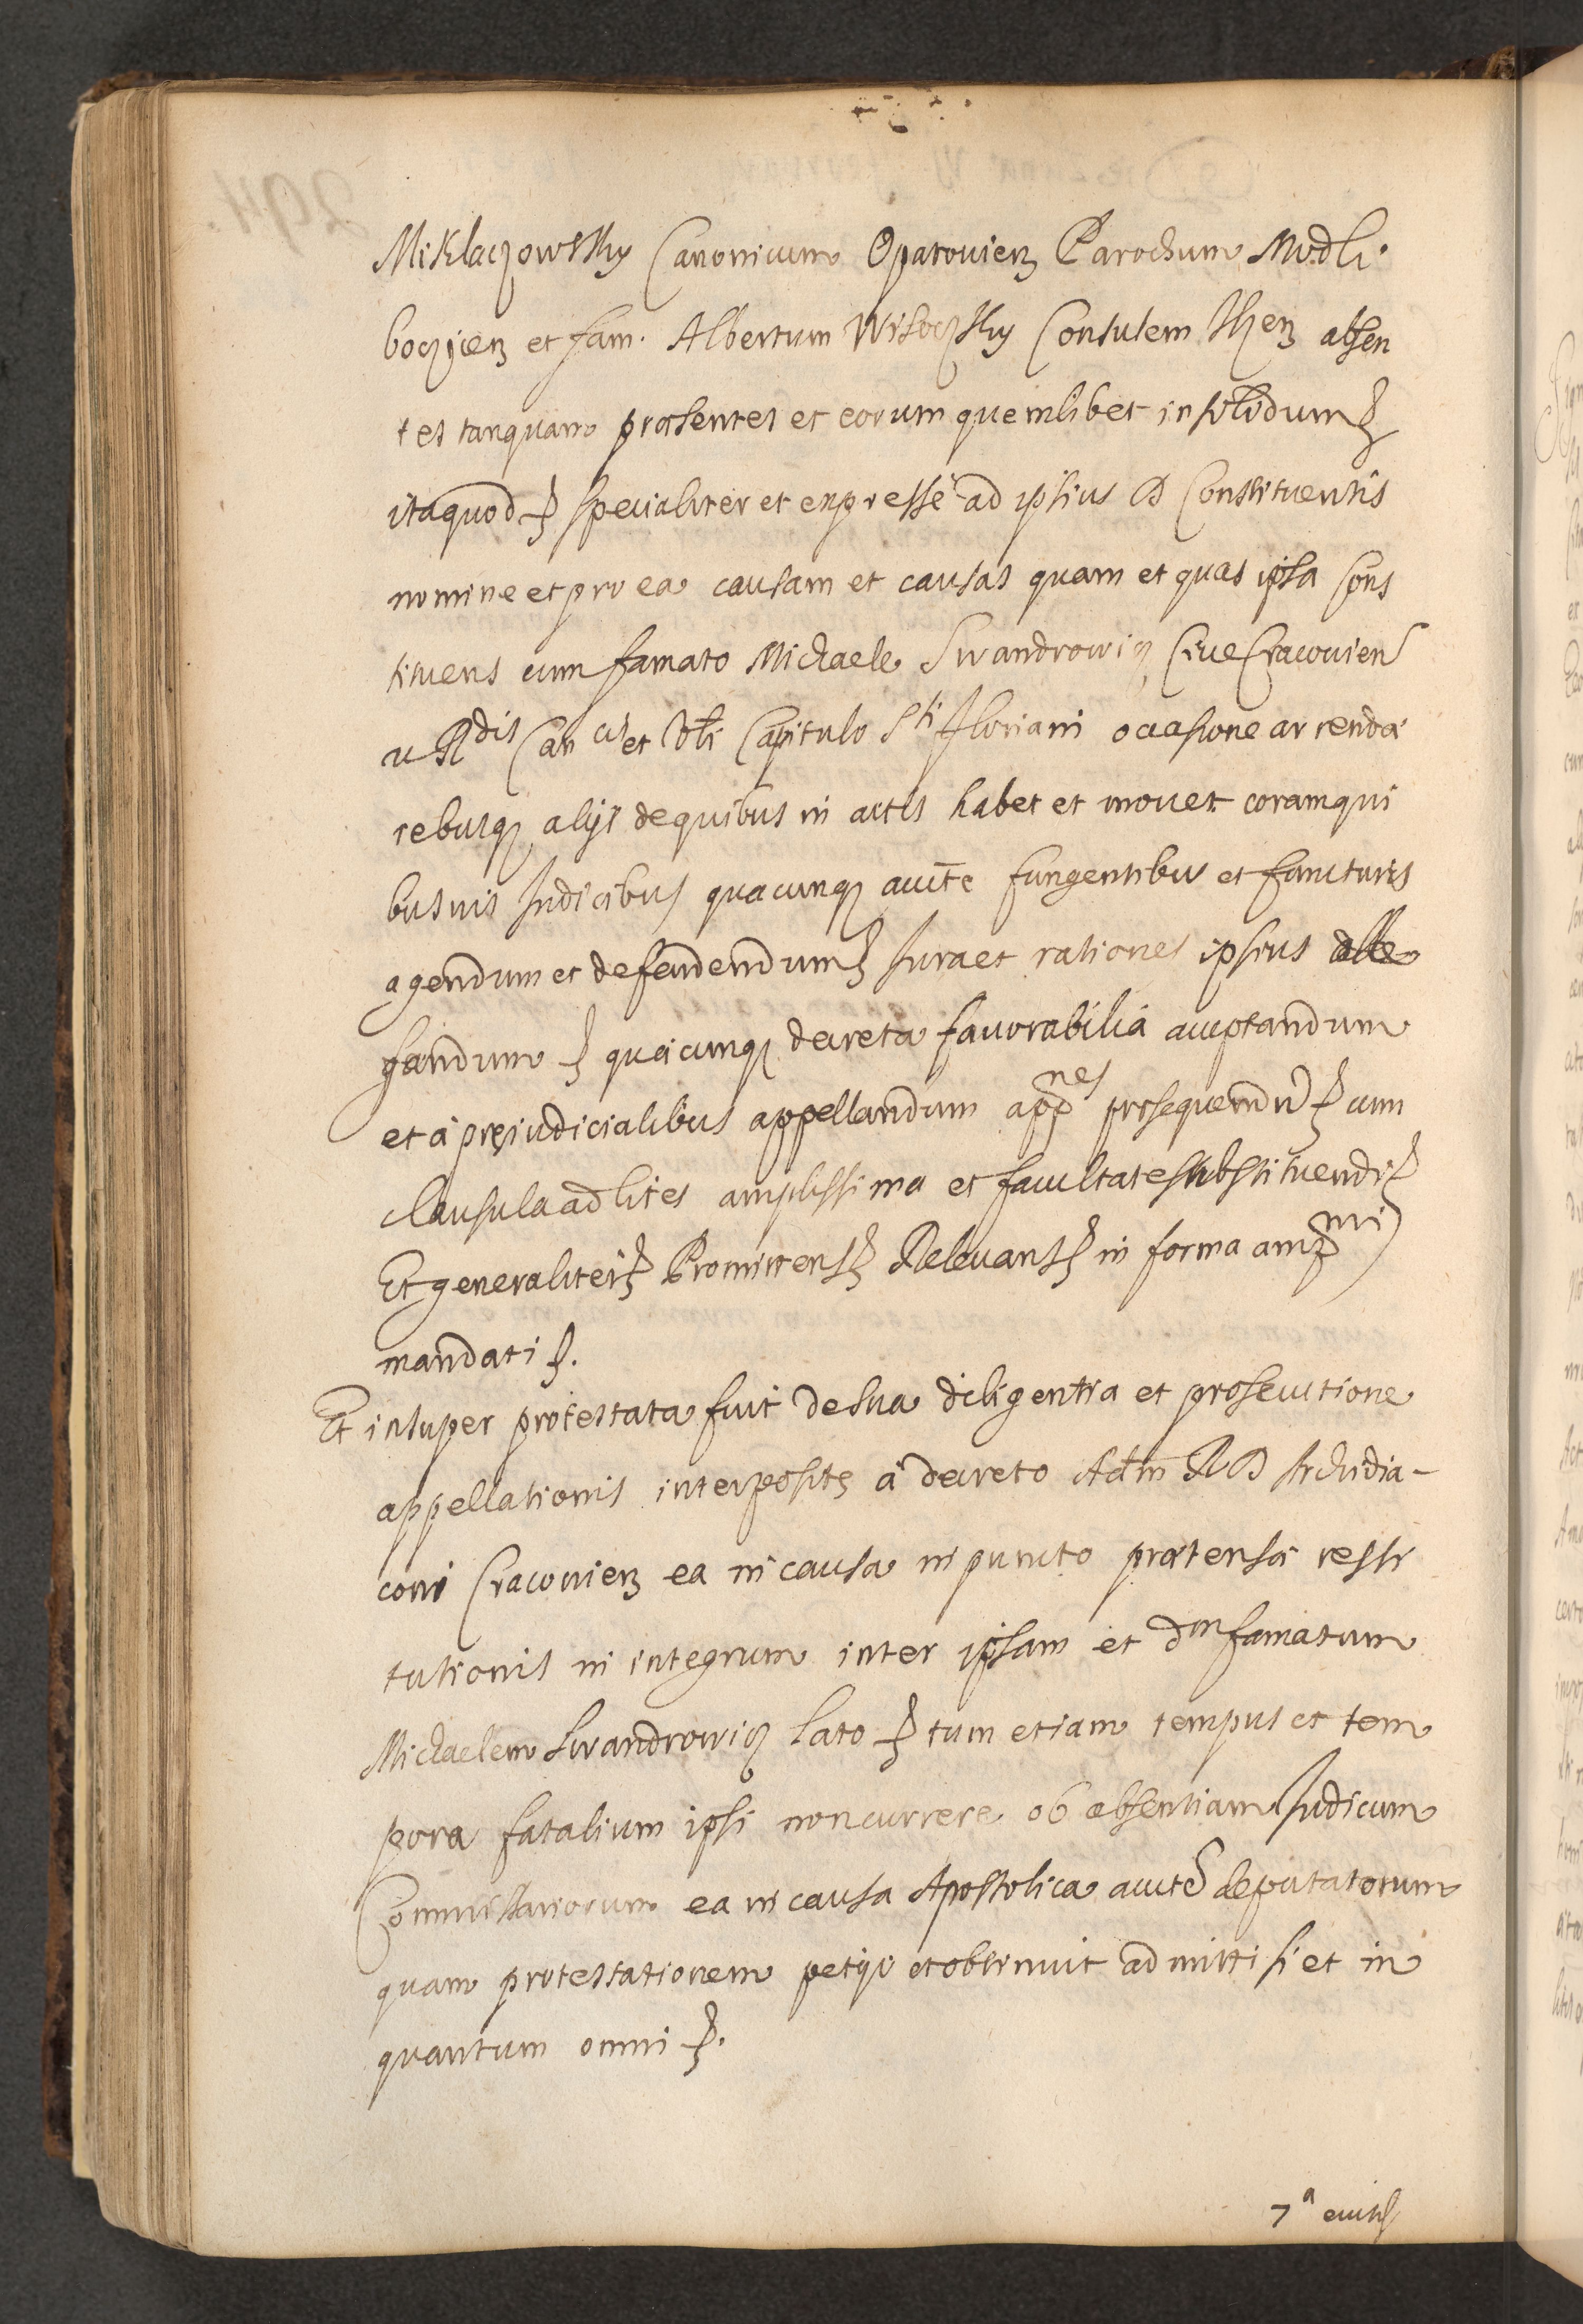 Miklaczowsky Canonicum Opatovien Parochum Modli
boczicen et fam. Albertum Wisoczky Consulem absen
tes tanquam præsentes et eorum quemlibet insolidum
itaquod specialiter et expresse ad ipsius D Constituentis
nomine et pro ea causam et causas quam et quas ipsa Cons
tituens cum famato Michaele Swandrowicz Cive Cracovien
v Rdis Can cis et Vbli Capitulo Sti Floriani occasione arrendæ
rebusq alijs de quibus in actis habet et movet coram qui
busuis Judicibus quacunq aucte fungentibus et functuris
agendum et defendendum Jura et rationes ipsius alle
gandum quæcunq decreta favorabilia acceptandum
et à pręiudicialibus appellandum appnes prosequendu cum
clausula ad lites amplissima et facultate substituendi
Et generaliter Promittens Relevans in forma ampmi
mandati
Et insuper protestata fuit de sua diligentia et prosecutione
appellationis interpositę à decreto Adm RD Archidia-
coni Cracovien ea in causa in puncto prætensæ resti
tutionis in integrum inter ipsam et dm famatum
Michaelem Swandrowicz lato tum etiam tempus et tem
pora fatalium ipsi non currere ob absentiam Judicum
Commissariorum ea in causa Apostolica aucte deputatorum
quam protestationem petijt et obtinuit admitti si et in
quantum omni
7a eiusd
294.